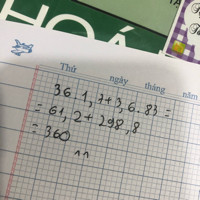 HOÁ
Thứ ngày tháng năm
36.1,7+3,6.83=
=61,2+298,8
=360
^^